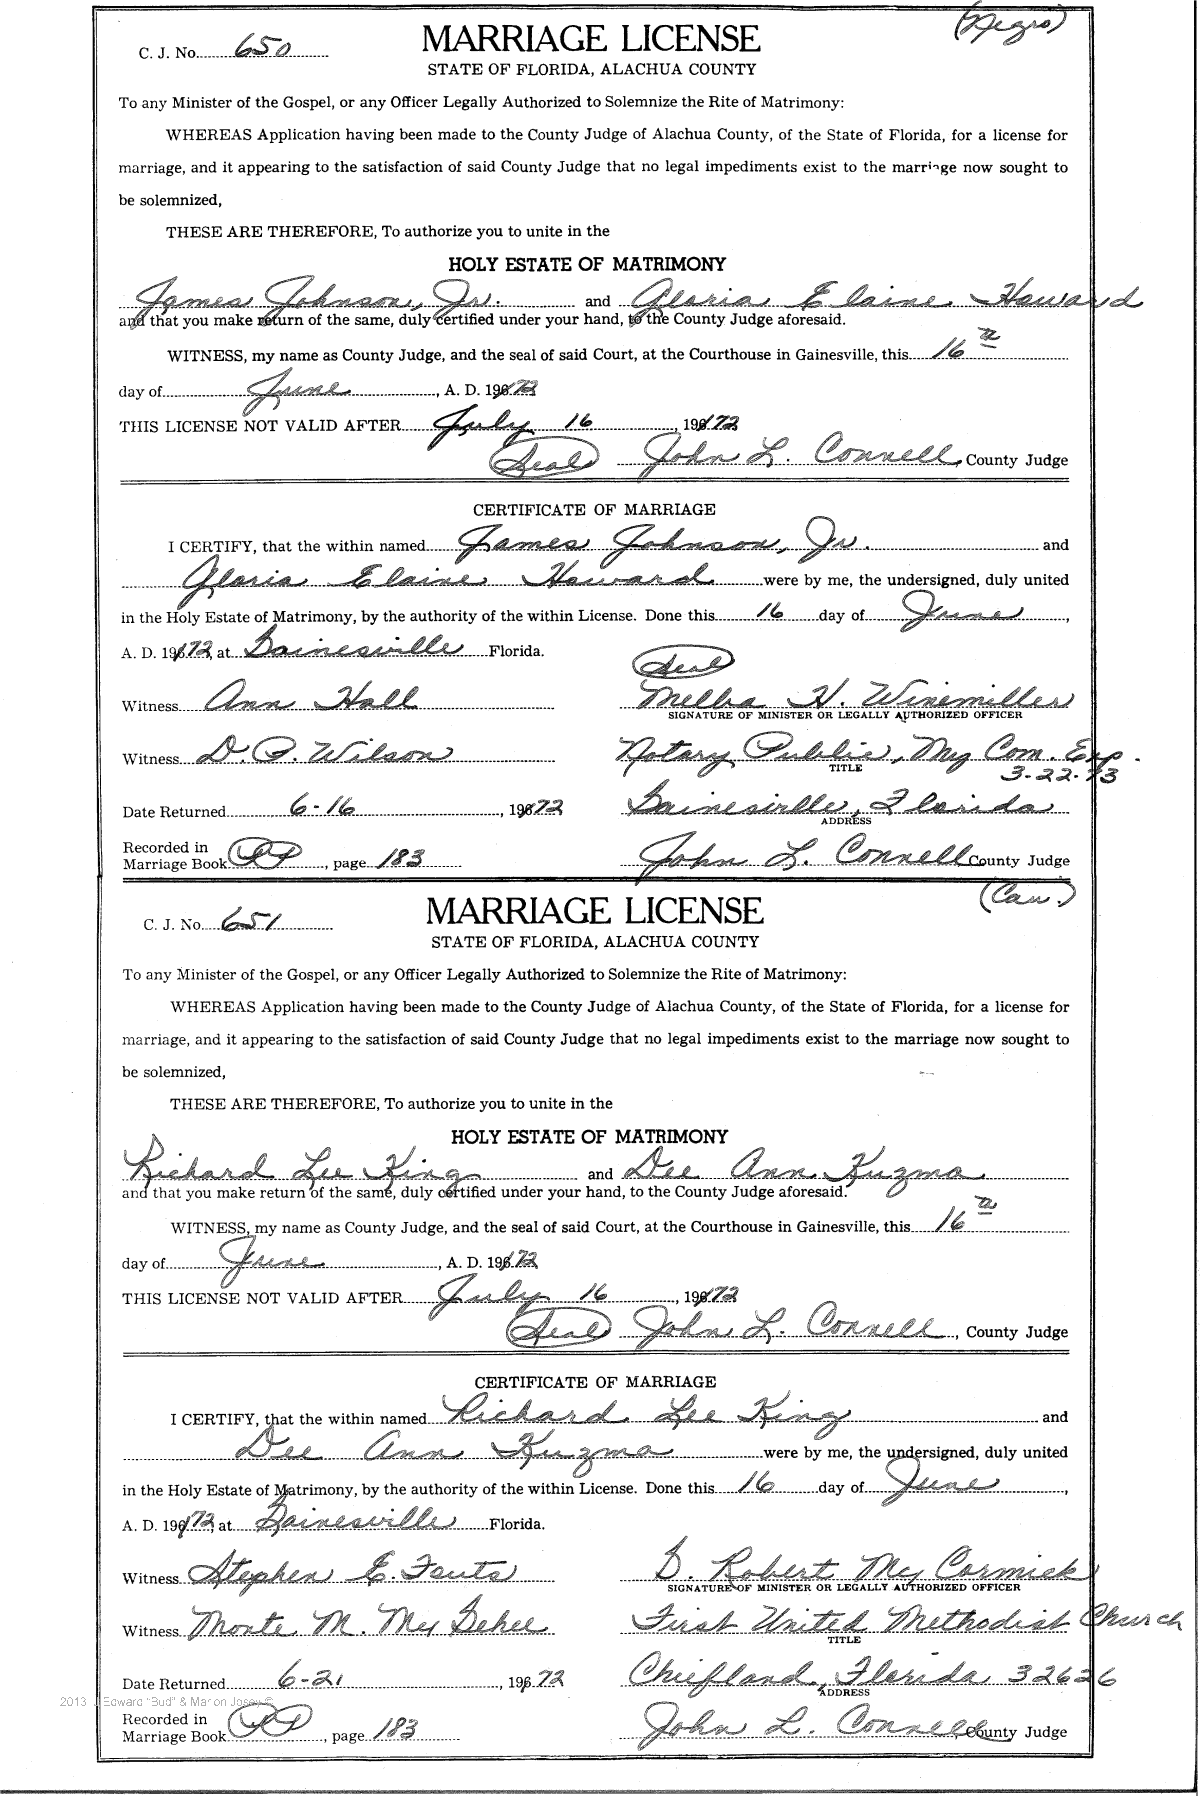 (Negro)
C. J. No. 650 MARRIAGE LICENSE
STATE OF FLORIDA, ALACHUA COUNTY
To any Minister of the Gospel, or any Officer Legally Authorized to Solemnize the Rite of Matrimony:
WHEREAS Application having been made to the County Judge of Alachua County, of the State of Florida, for a license for
marriage, and it appearing to the satisfaction of said County Judge that no legal impediments exist to the marriage now sought to
be solemnized,
THESE ARE THEREFORE, To authorize you to unite in the
HOLY ESTATE OF MATRIMONY
James Johnson, Jr. and Gloria Elaine Howard
and that you make return of the same, duly certified under your hand, to the County Judge aforesaid.
WITNESS, my name as County Judge, and the seal of said Court, at the Courthouse in Gainesville, this 16th
day of June, A. D. 1972
THIS LICENSE NOT VALID AFTER July 16, 1972
(Seal) John L. Connell, County Judge
CERTIFICATE OF MARRIAGE
I CERTIFY, that the within named James Johnson, Jr. and
Gloria Elaine Howard were by me, the undersigned, duly united
in the Holy Estate of Matrimony, by the authority of the within License. Done this 16 day of June,
A. D. 1972, at Gainesville Florida.
(Seal)
Witness Ann Hall Melba H. Winemiller
SIGNATURE OF MINISTER OR LEGALLY AUTHORIZED OFFICER
Witness D. P. Wilson Notary Public, My Com. Exp.
TITLE 3-22-73
Date Returned 6-16, 1972 Gainesville, Florida
ADDRESS
Recorded in
Marriage Book PP, page 183 John L. Connell County Judge
(Cau.)
C. J. No. 651 MARRIAGE LICENSE
STATE OF FLORIDA, ALACHUA COUNTY
To any Minister of the Gospel, or any Officer Legally Authorized to Solemnize the Rite of Matrimony:
WHEREAS Application having been made to the County Judge of Alachua County, of the State of Florida, for a license for
marriage, and it appearing to the satisfaction of said County Judge that no legal impediments exist to the marriage now sought to
be solemnized,
THESE ARE THEREFORE, To authorize you to unite in the
HOLY ESTATE OF MATRIMONY
Richard Lee King and Dee Ann Kuzma
and that you make return of the same, duly certified under your hand, to the County Judge aforesaid.
WITNESS, my name as County Judge, and the seal of said Court, at the Courthouse in Gainesville, this 16th
day of June, A. D. 1972
THIS LICENSE NOT VALID AFTER July 16, 1972
(Seal) John L. Connell, County Judge
CERTIFICATE OF MARRIAGE
I CERTIFY, that the within named Richard Lee King and
Dee Ann Kuzma were by me, the undersigned, duly united
in the Holy Estate of Matrimony, by the authority of the within License. Done this 16 day of June,
A. D. 1972, at Gainesville Florida.
Witness Stephen E. Fouts G. Robert McCormick
SIGNATURE OF MINISTER OR LEGALLY AUTHORIZED OFFICER
Witness Monte M. McGehee First United Methodist Church
TITLE
Date Returned 6-21, 1972 Chiefland, Florida 32626
ADDRESS
2013 J Edward "Bud" & Marion Josey ©
Recorded in
Marriage Book PP, page 183 John L. Connell County Judge